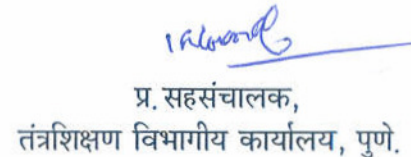 प्र. सहसंचालक,
तंत्रशिक्षण विभागीय कार्यालय, पुणे.